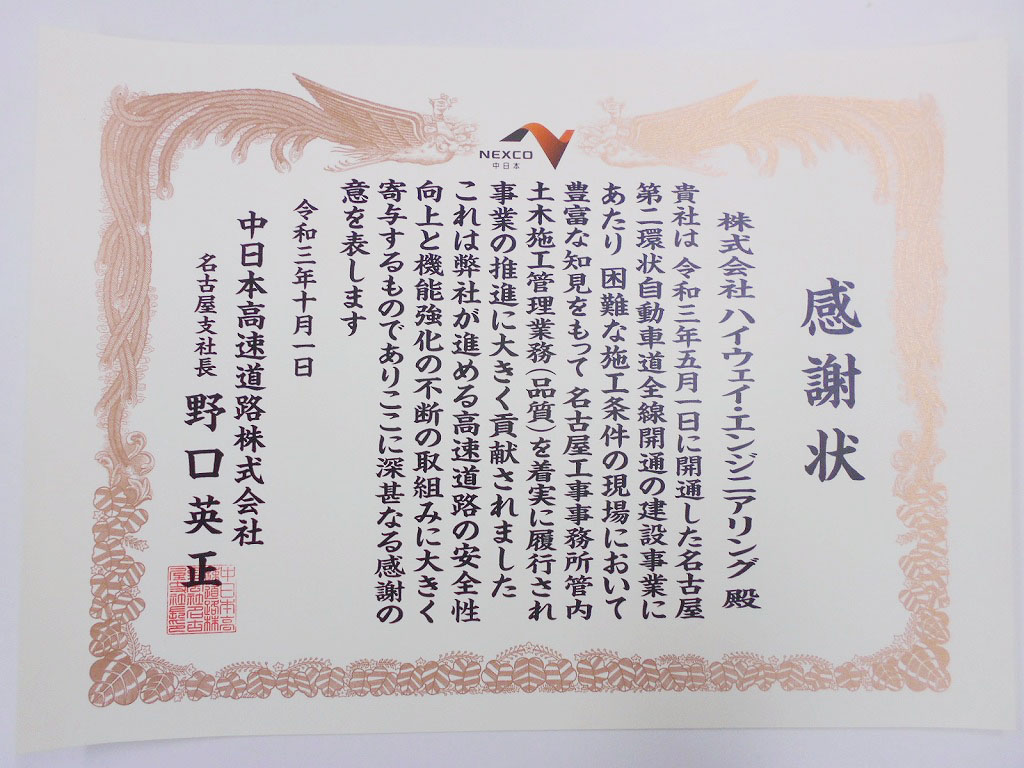 NEXCO
中日本
感謝状
株式会社 ハイウェイ・エンジニアリング 殿
貴社は 令和三年五月一日に開通した名古屋
第二環状自動車道全線開通の建設事業に
あたり 困難な施工条件の現場において
豊富な知見をもって 名古屋工事事務所管内
土木施工管理業務(品質)を着実に履行され
事業の推進に大きく貢献されました
これは弊社が進める高速道路の安全性
向上と機能強化の不断の取組みに大きく
寄与するものでありここに深甚なる感謝の
意を表します
令和三年十月一日
中日本高速道路株式会社
名古屋支社長 野口英正